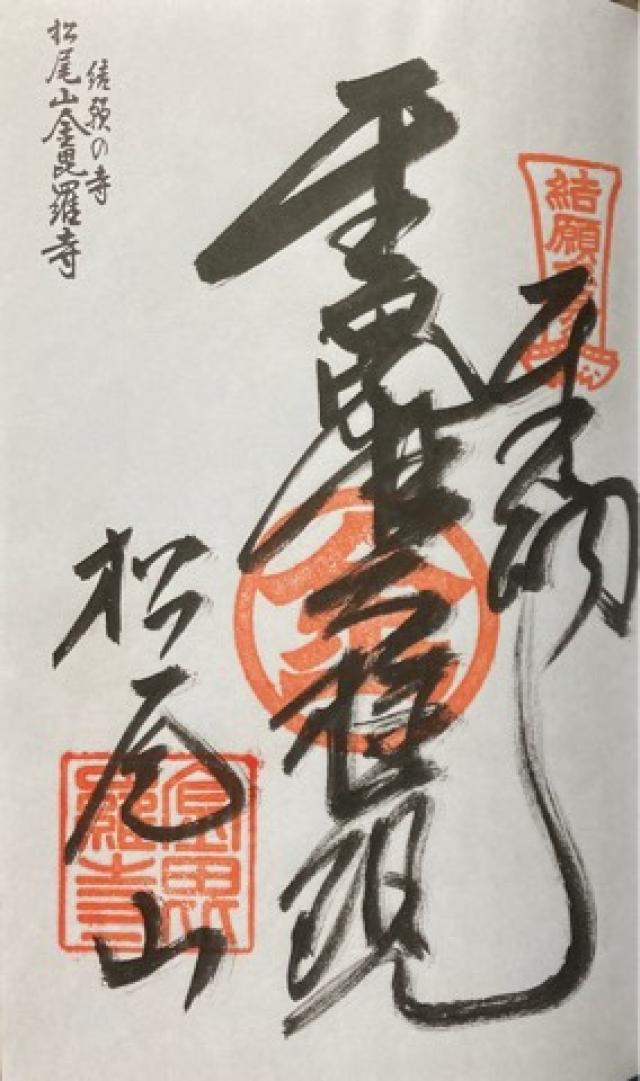 結願
奉拝
金毘羅大権現
金
松尾山
金毘羅寺
結願の寺
松尾山金毘羅寺